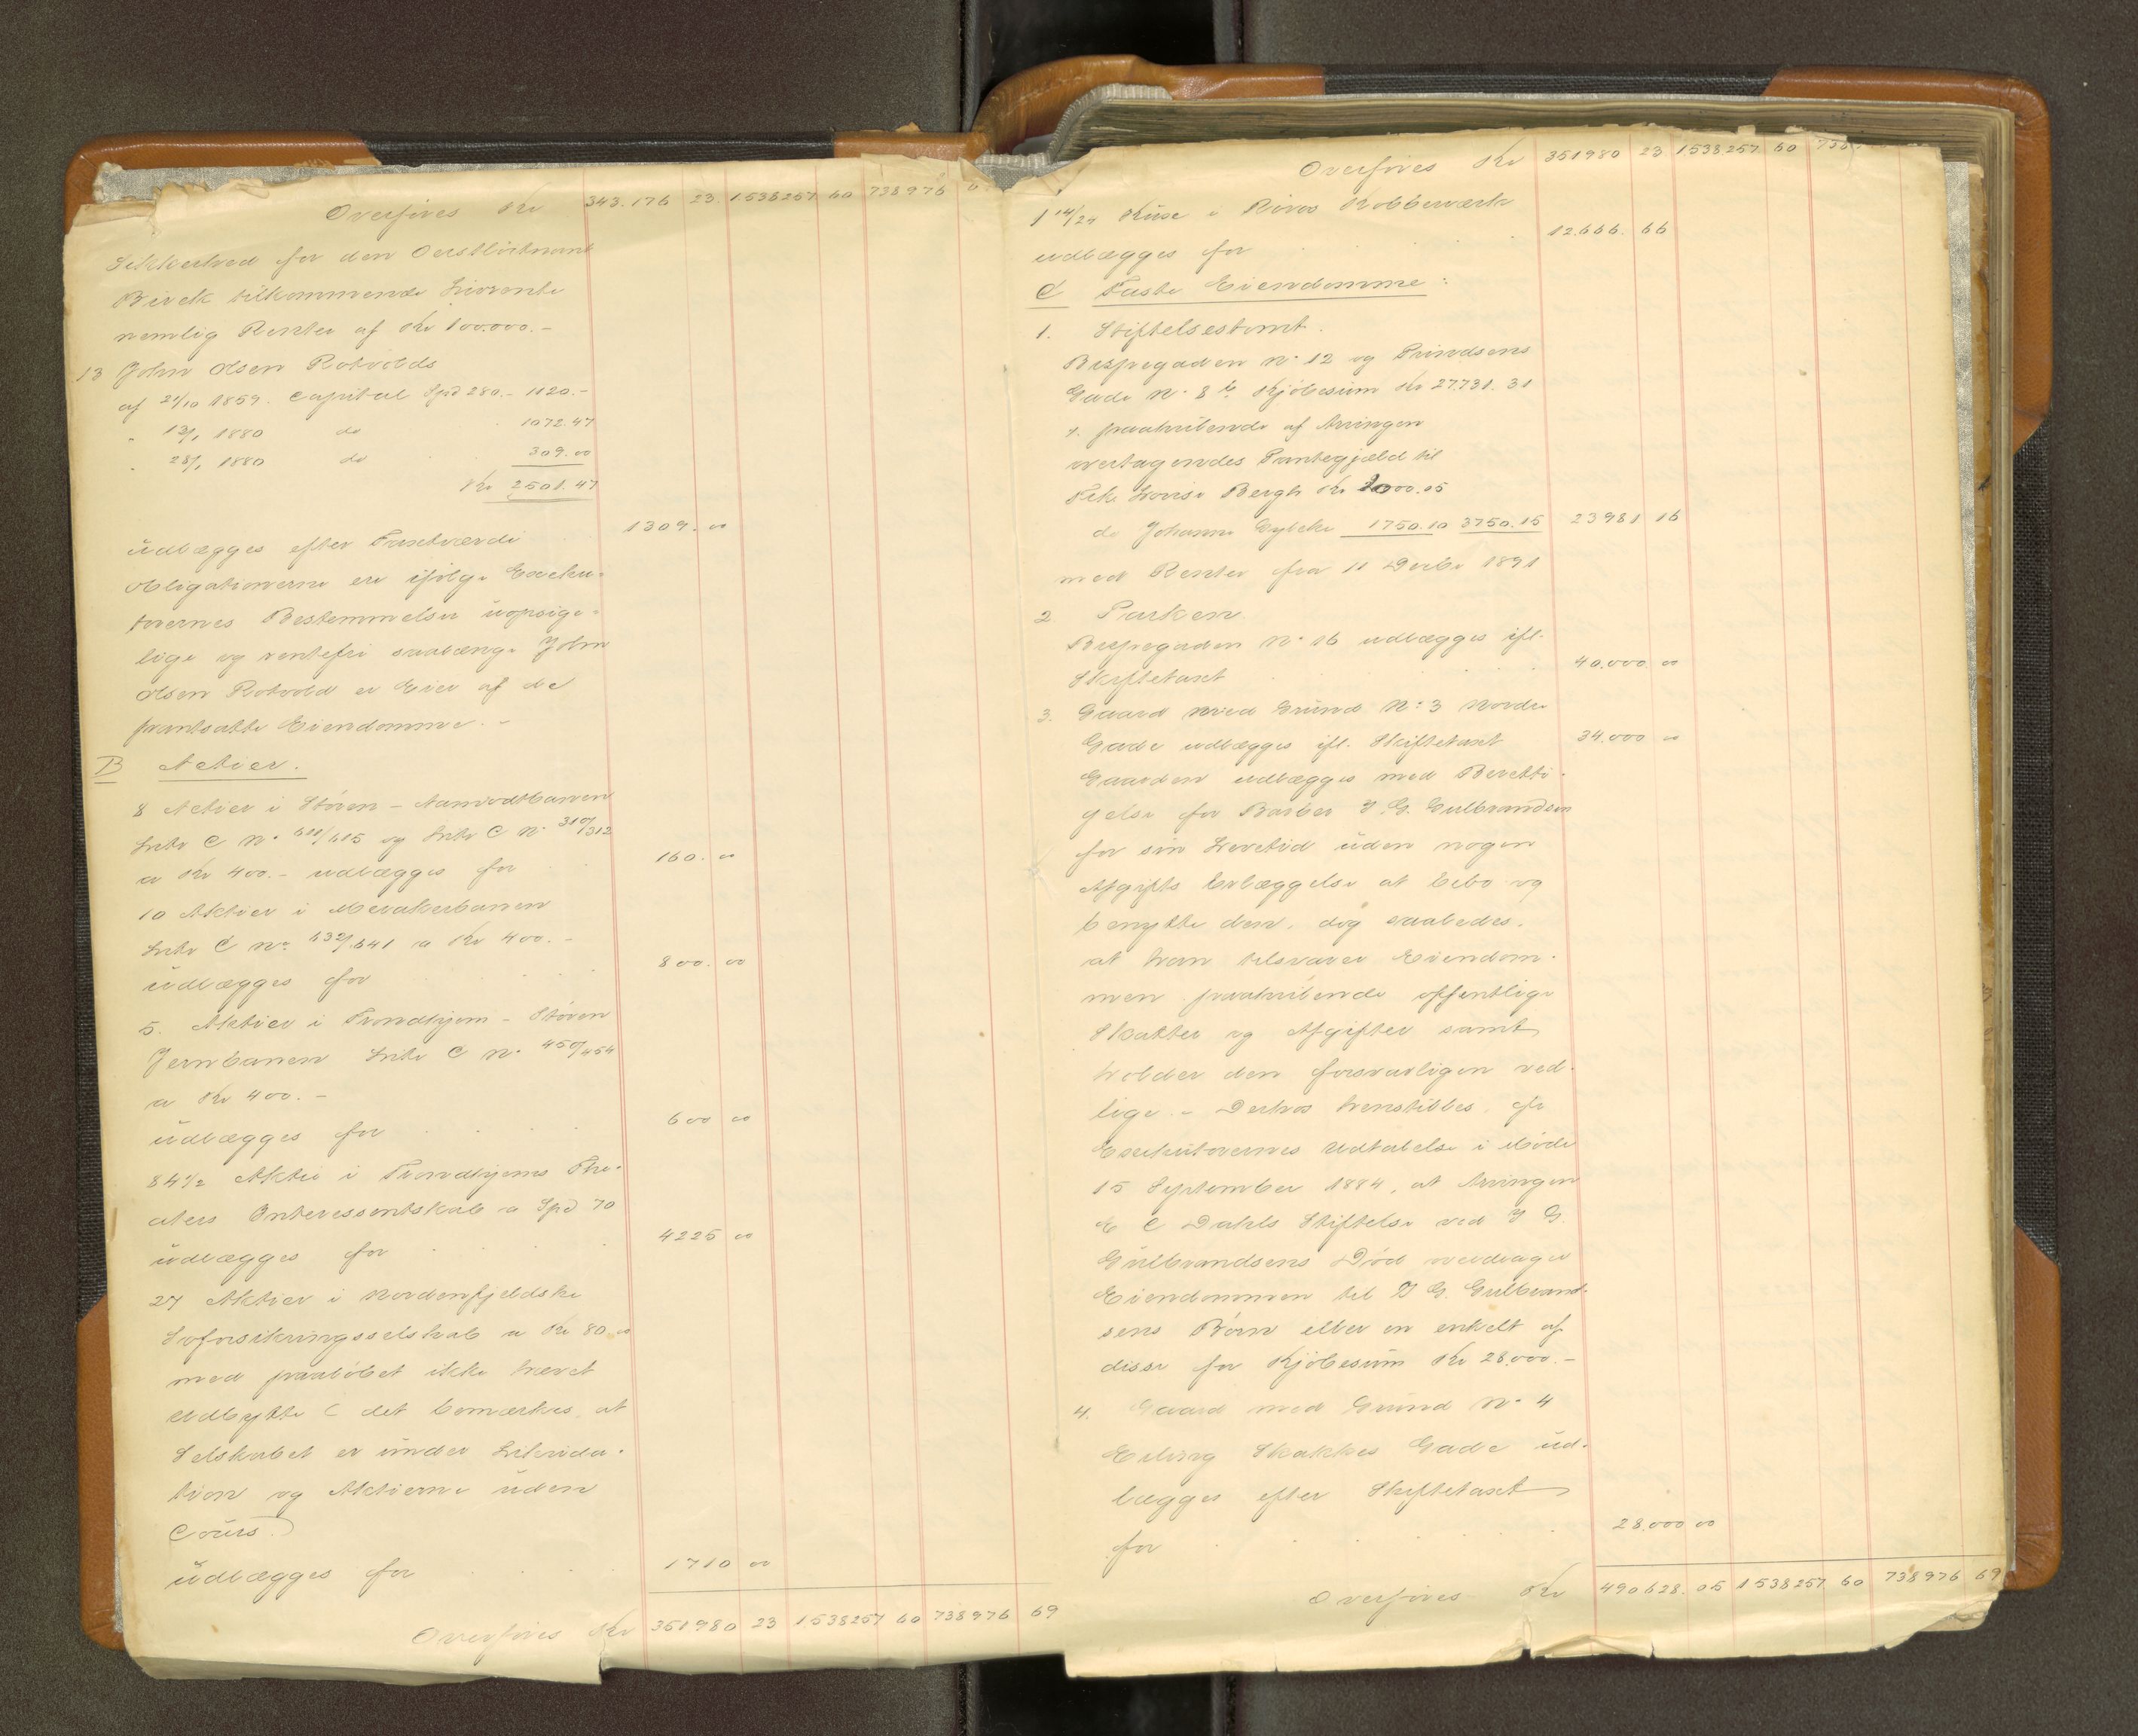 Overføres Kr 343.176 23 1538257 60 738976
Sikkerhed for den Oberstløitnant
Birck tilkommende Livrente
nemlig Renter af Kr 100.000.-
13 John Olsen Rotvolds
af 21/10 1859. Capital Spd 280.- 1120.-
" 13/1 1880 do 1072.47
" 28/1 1880 do 309.00
Kr 2501.47
udlægges efter Pantværdi 1309.00
Obligationerne ere ifølge Exeku-
torernes Bestemmelse uopsige-
lige og rentefri saalænge John
Olsen Rotvold er Eier af de
pantsatte Eiendomme.-
B Actier.
8 Actier i Støren - Aamodtbanen
Litr C No 611/615 og Litr C No 310/312
a Kr 400.- udlægges for 160.00
10 Aktier i Merakerbanen
Litr C No 632/641 a Kr 400.-
udlægges for 800.00
5. Aktier i Trondhjem - Støren
Jernbanen Litr C No 450/454
a Kr 400.-
udlægges for 600 00
84 1/2 Aktie i Trondhjems The-
aters Interessentskab a Spd 70
udlægges for 4225 00
27 Aktier i Nordenfjeldske
Søforsikringsselskab a Kr 80.00
med paaløbet ikke hævet
Udbytte ( det bemærkes, at
Selskabet er under Likvida-
tion og Aktierne uden
Cours.)
udlægges for 1710 00
Overføres Kr 351980 23 1538257 60 738976 69
Overføres Kr 351980 23 1538257 60
1 14/24 Kuxe i Røros Kobberværk
udlægges for 12.666. 66
C Faste Eiendomme:
1. Stiftelsestomt.
Bispegaden No 12 og Prindsens
Gade No 8 b Kjøbesum Kr 27.731.31
÷ paahvilende af Arvingen
overtagendes Pantegjæld til
Frk. Lovise Bergh Kr 2000.05
do Johanne Lybcke 1750.10 3750.15 23981 16
med Renter fra 11 Decbr 1891
2 Parken
Bispegaden No 16 udlægges ifl.
Skiftetaxt 40.000 00
3. Gaard med Grund No 3 Nordre
Gade udlægges ifl. Skiftetaxt 34.000 00
Gaarden udlægges med Beretti-
gelse for Barber I. G. Gulbrandsen
for sin Levetid uden nogen
Afgifts Erlæggelse at bebo og
benytte den, dog saaledes,
at han tilsvarer Eiendom-
men paahvilende offentlige
Skatter og Afgifter samt
holder den forsvarligen ved-
lige.- Derhos henstilles, efr
Exekutorernes Udtalelse i Møde
15 September 1884, at Arvingen
E C Dahls Stiftelse ved I G.
Gulbrandsens Død overdrager
Eiendommen til I G. Gulbrand-
sens Børn eller en enkelt af
disse for Kjøbesum Kr 28.000.-
4. Gaard med Grund No 4
Erling Skakkes Gade ud-
lægges efter Skiftetaxt
for 28.000 00
Overføres Kr 490628.05 1538257 60 738976 69